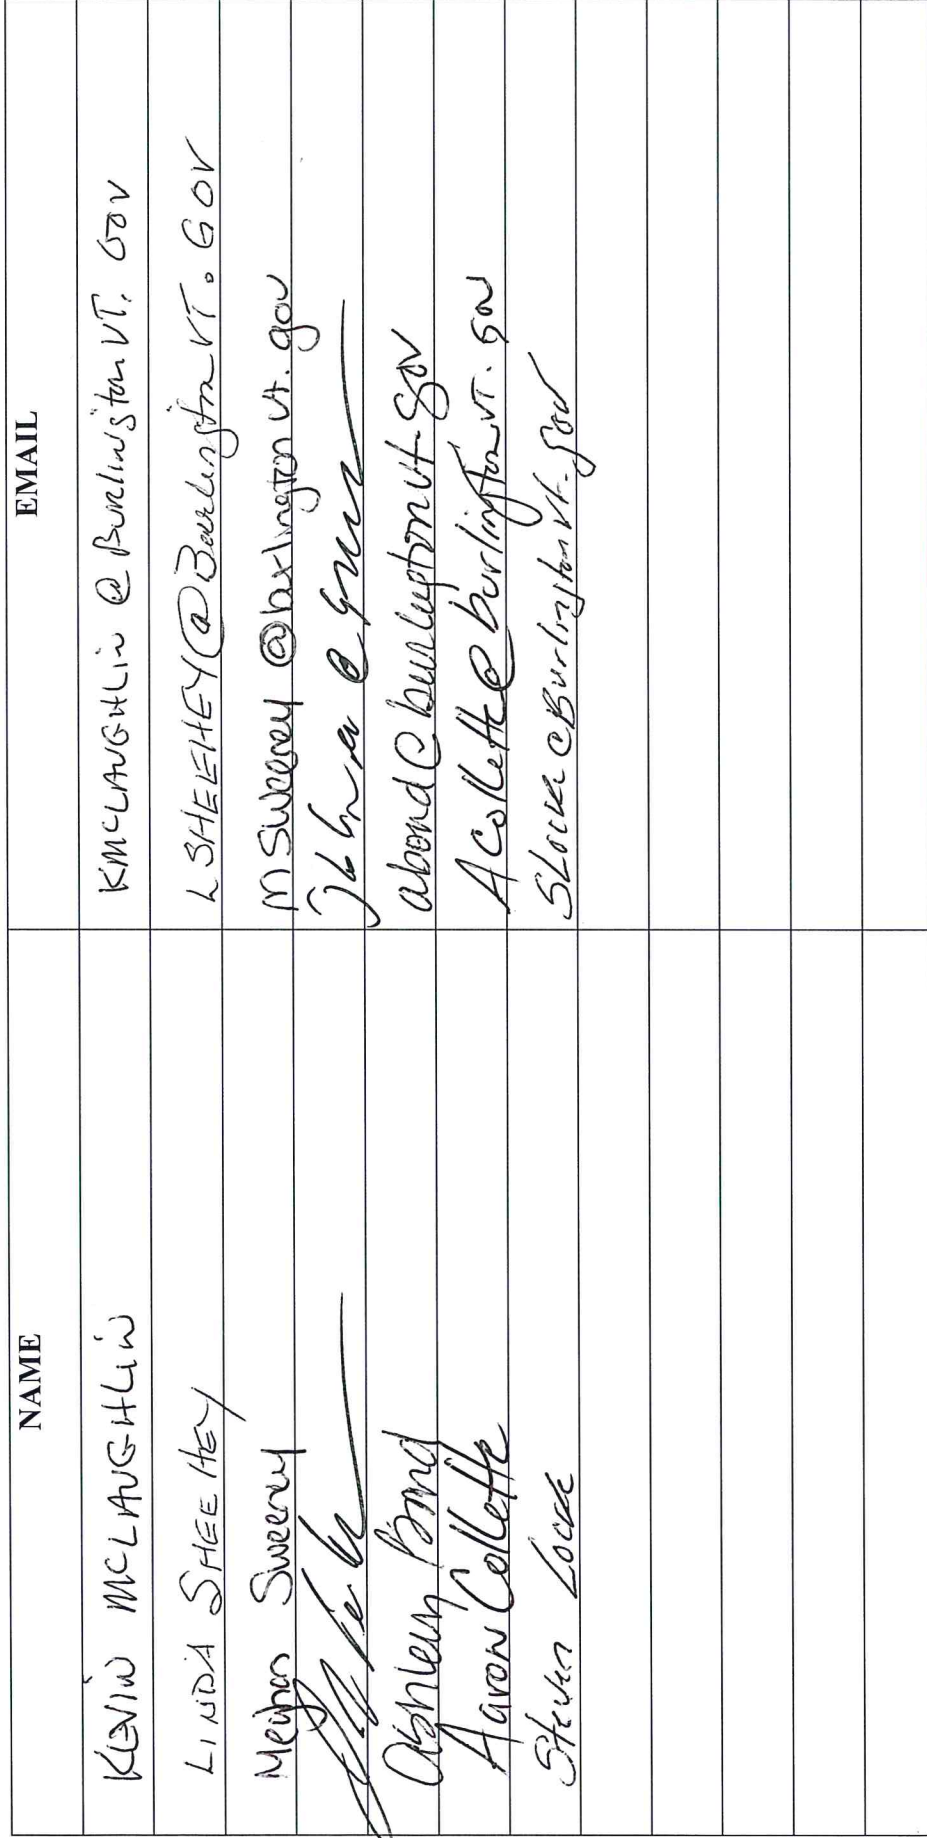 NAME EMAIL
KEVIN MCLAUGHLIN KMCLAUGHLIN @ BURLINGTONVT. GOV
LINDA SHEEHEY LSHEEHEY@BurlingtonVT. GOV
Meghan Sweeney msweeney @burlingtonvt. gov
Ashleigh Bond abond@burlingtonvt.gov
Aaron Collette Acollette@burlingtonVT. gov
Steven Locke SLocke@Burlingtonvt.gov